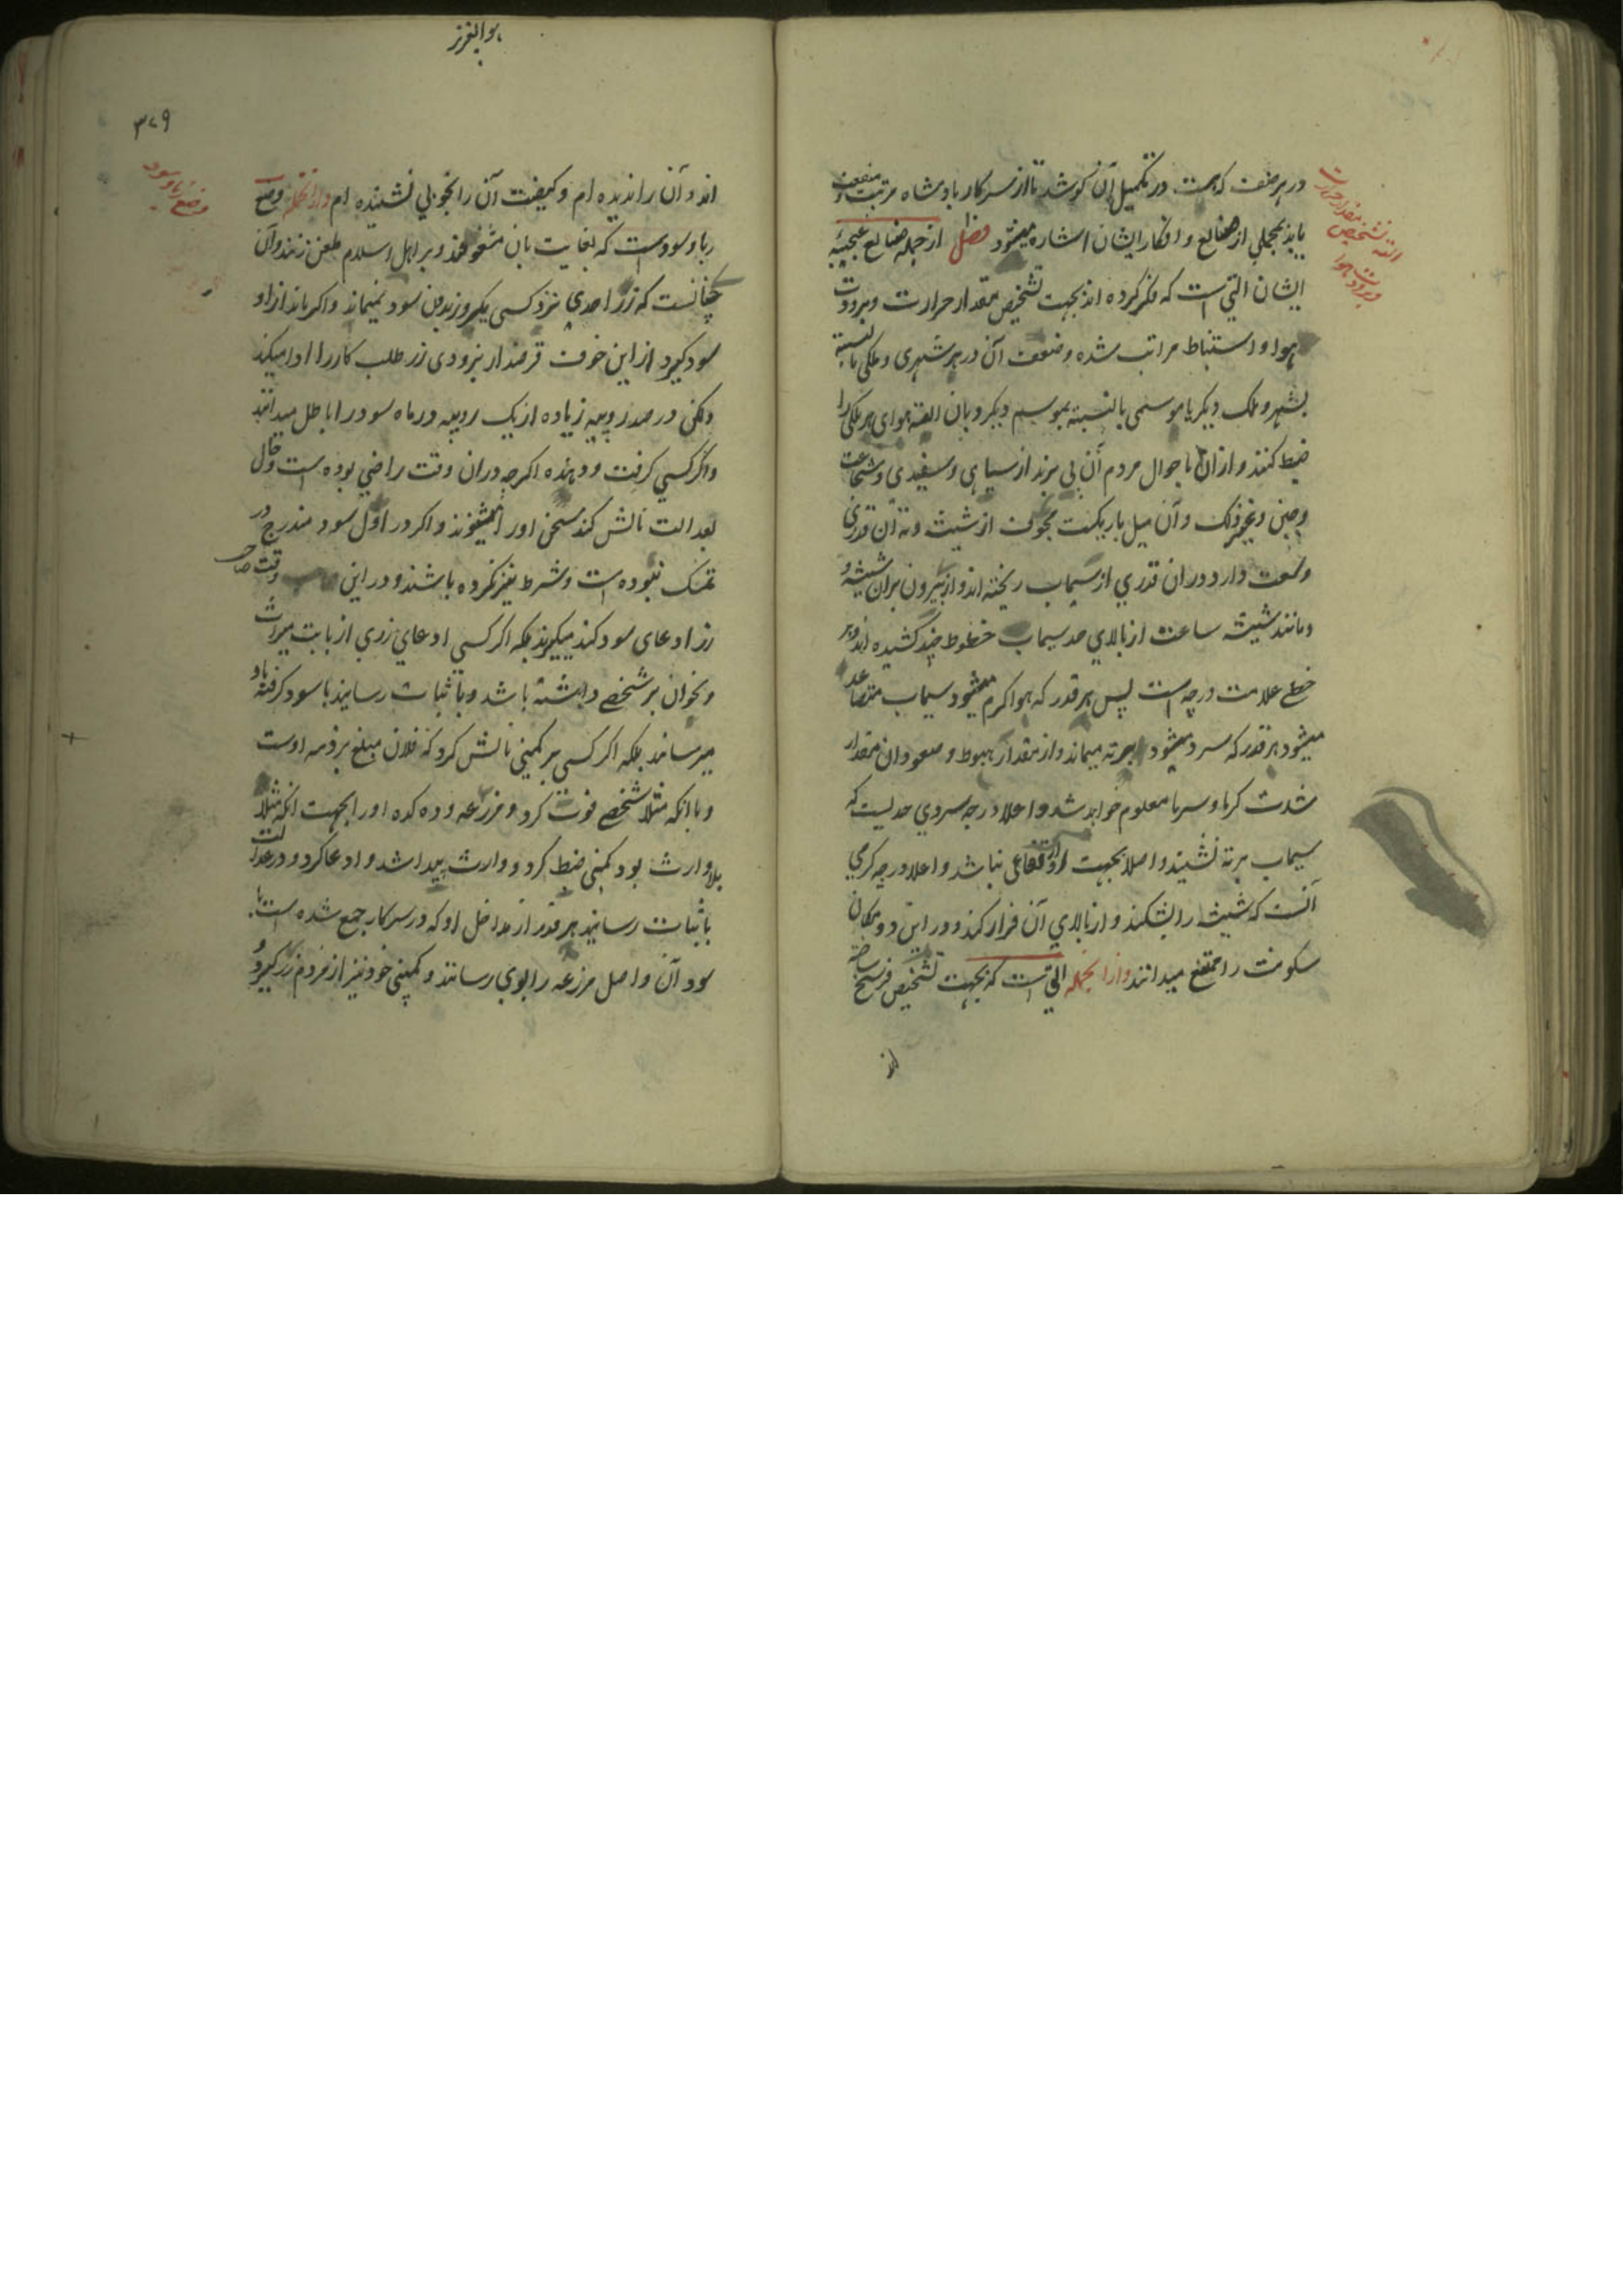 در هر صنعت که هست در تکمیل آن کوشد تا از سرکار پادشاه مرتبت و منفعت
یابد بمجملی از صنایع و افکار ایشان اشاره میشود فصل از جمله صنایع عجیبه
ایشان التی است که فکر کرده اند بجهت تشخیص مقدار حرارت و برودت
هوا و استنباط مراتب شده و ضعف آن در هر شهری و ملکی بالنسبته
بشهر و ملک دیگر یا موسمی بالنسبته بموسم دیگر و بان الفته هوای هر ملکی را
ضبط کنند و از ان باحوال مردم آن پی برند از سیاهی و سفیدی و شجاعت
و جبن و غیر ذلک و آن میل باریکیست مجوف از شیشه و ته آن قدری
وسعت دارد در ان قدری از سیماب ریخته اند و از بیرون بران شیشه و
مانند شیشه ساعت از بالای حد سیماب خطوط چند کشیده اند و هر
خطی علامت درجه است پس هر قدر که هوا گرم میشود سیماب متصاعد
میشود هر قدر که سرد میشود بته میماند و از مقدار هبوط و صعود ان مقدار
شدت گرما و سرما معلوم خواهد شد و اعلا درجه سردی حدیست که
سیماب بر ته نشیند و اصلا بجهت او ارتفاعی نباشد و اعلا درجه گرمی
آنست که شیشه را بشکند و از بالای آن فرار کند و در این دو مکان
سکونت را ممتنع میدانند و از انجمله التی است که بجهت تشخیص فرسخ ساخته
اند
آلت تشخیص مقدار حرارت
و برودت هوا
هو العزیز
۳۲۹
اند و آن را ندیده ام و کیفیت آن را بخوبی نشنیده ام و از انجمله وضع
ربا و سود است که بغایت بان مشغوفند و بر اهل اسلام طعن زنند و آن
چنانست که زر احدی نزد کسی یکروز بدون سود نمیماند و اگر بماند از او
سود گیرد از این خوف قرضدار بزودی زر طلب کار را ادا میکند
ولکن در صد روپیه زیاده از یک روپیه در ماه سود را باطل میدانند
و اگر کسی گرفت و دهنده اگرچه دران وقت راضی بوده است و حال
بعدالت نالش کند سخن او را میشنوند و اگر در اول سود مندرج در
تمسک نبوده است و شرط نیز نکرده باشند و در این وقت صاحب
زر ادعای سود کند میگیرند بلکه اگر کسی ادعای زری از بابت میراث
و نحو ان بر شخصی داشته باشد و باثبات رسانید با سود گرفته باو
میرسانند بلکه اگر کسی بر کمپنی نالش کرد که فلان مبلغ بر ذمه اوست
و یا انکه مثلا شخصی فوت کرد و مزرعه و ده کده او را بجهت انکه مثلا
بلا وارث بود کمپنی ضبط کرد و وارث پیدا شد و ادعا کرد و در عدالت
باثبات رسانید هر قدر از مداخل او که در سرکار جمع شده است با
سود آن و اصل مزرعه را بوی رسانند و کمپنی خود نیز از مردم زر گیرد و
وضع ربا و سود